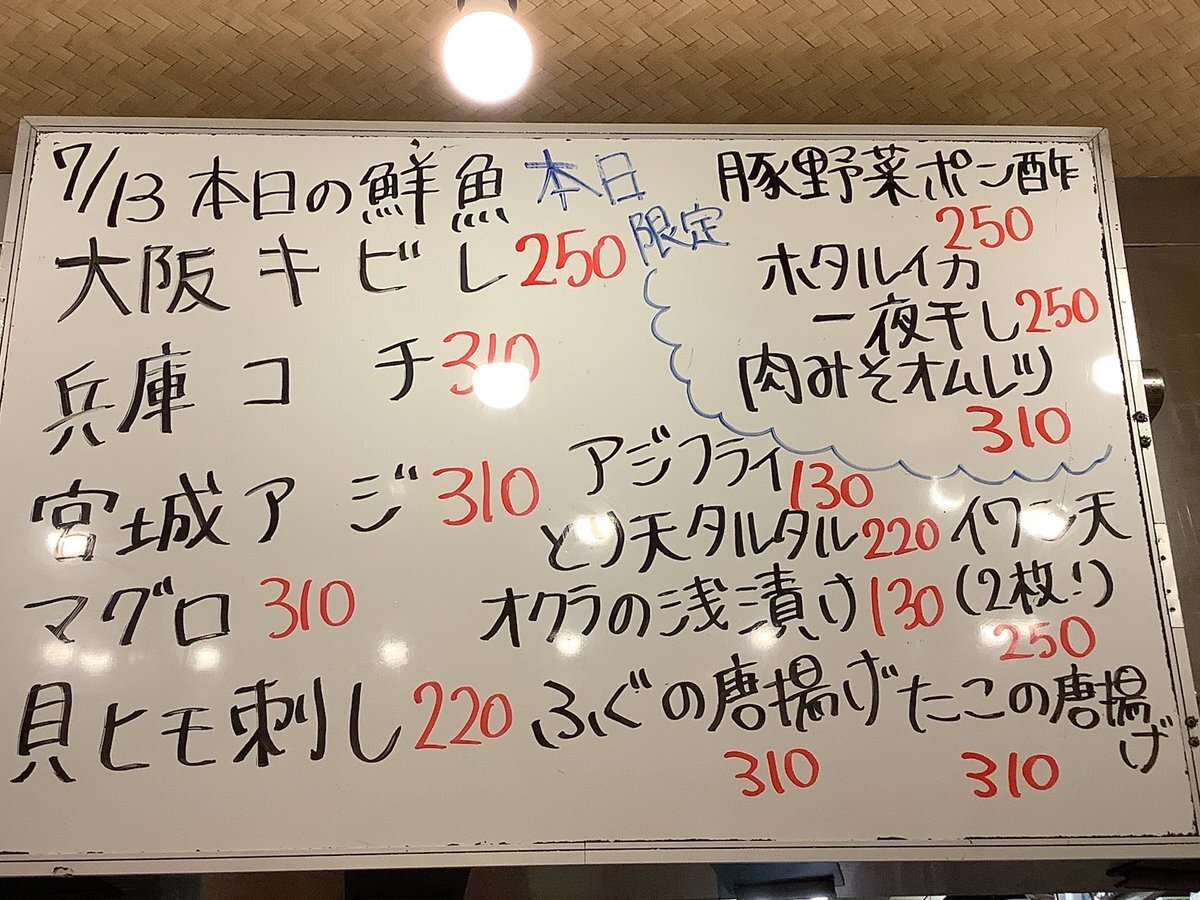 7/13 本日の鮮魚
大阪 キビレ 250
兵庫 コチ 310
宮城 アジ 310
マグロ 310
貝ヒモ刺し 220
本日
限定
豚野菜ポン酢
250
ホタルイカ
一夜干し 250
肉みそオムレツ
310
アジフライ 130
とり天タルタル 220
オクラの浅漬け 130
イワシ天
(2枚!)
250
ふぐの唐揚げ
310
たこの唐揚げ
310